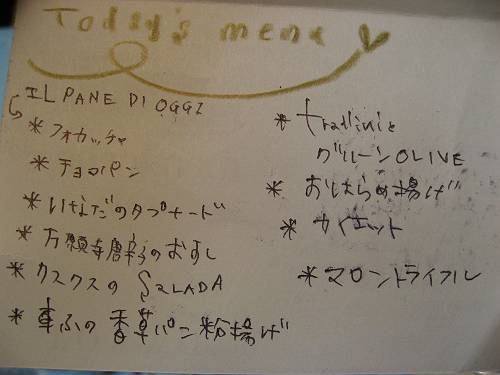 Today's menu
IL PANE DI OGGI
*フォカッチャ
*チョコパン
*いなだのタプナード
*万願寺唐辛子のおすし
*クスクスの SALADA
*車ふの香草パン粉揚げ
*tralliniと
グルーンOLIVE
*おしはらめ揚げ
*カイエット
*マロントライフル